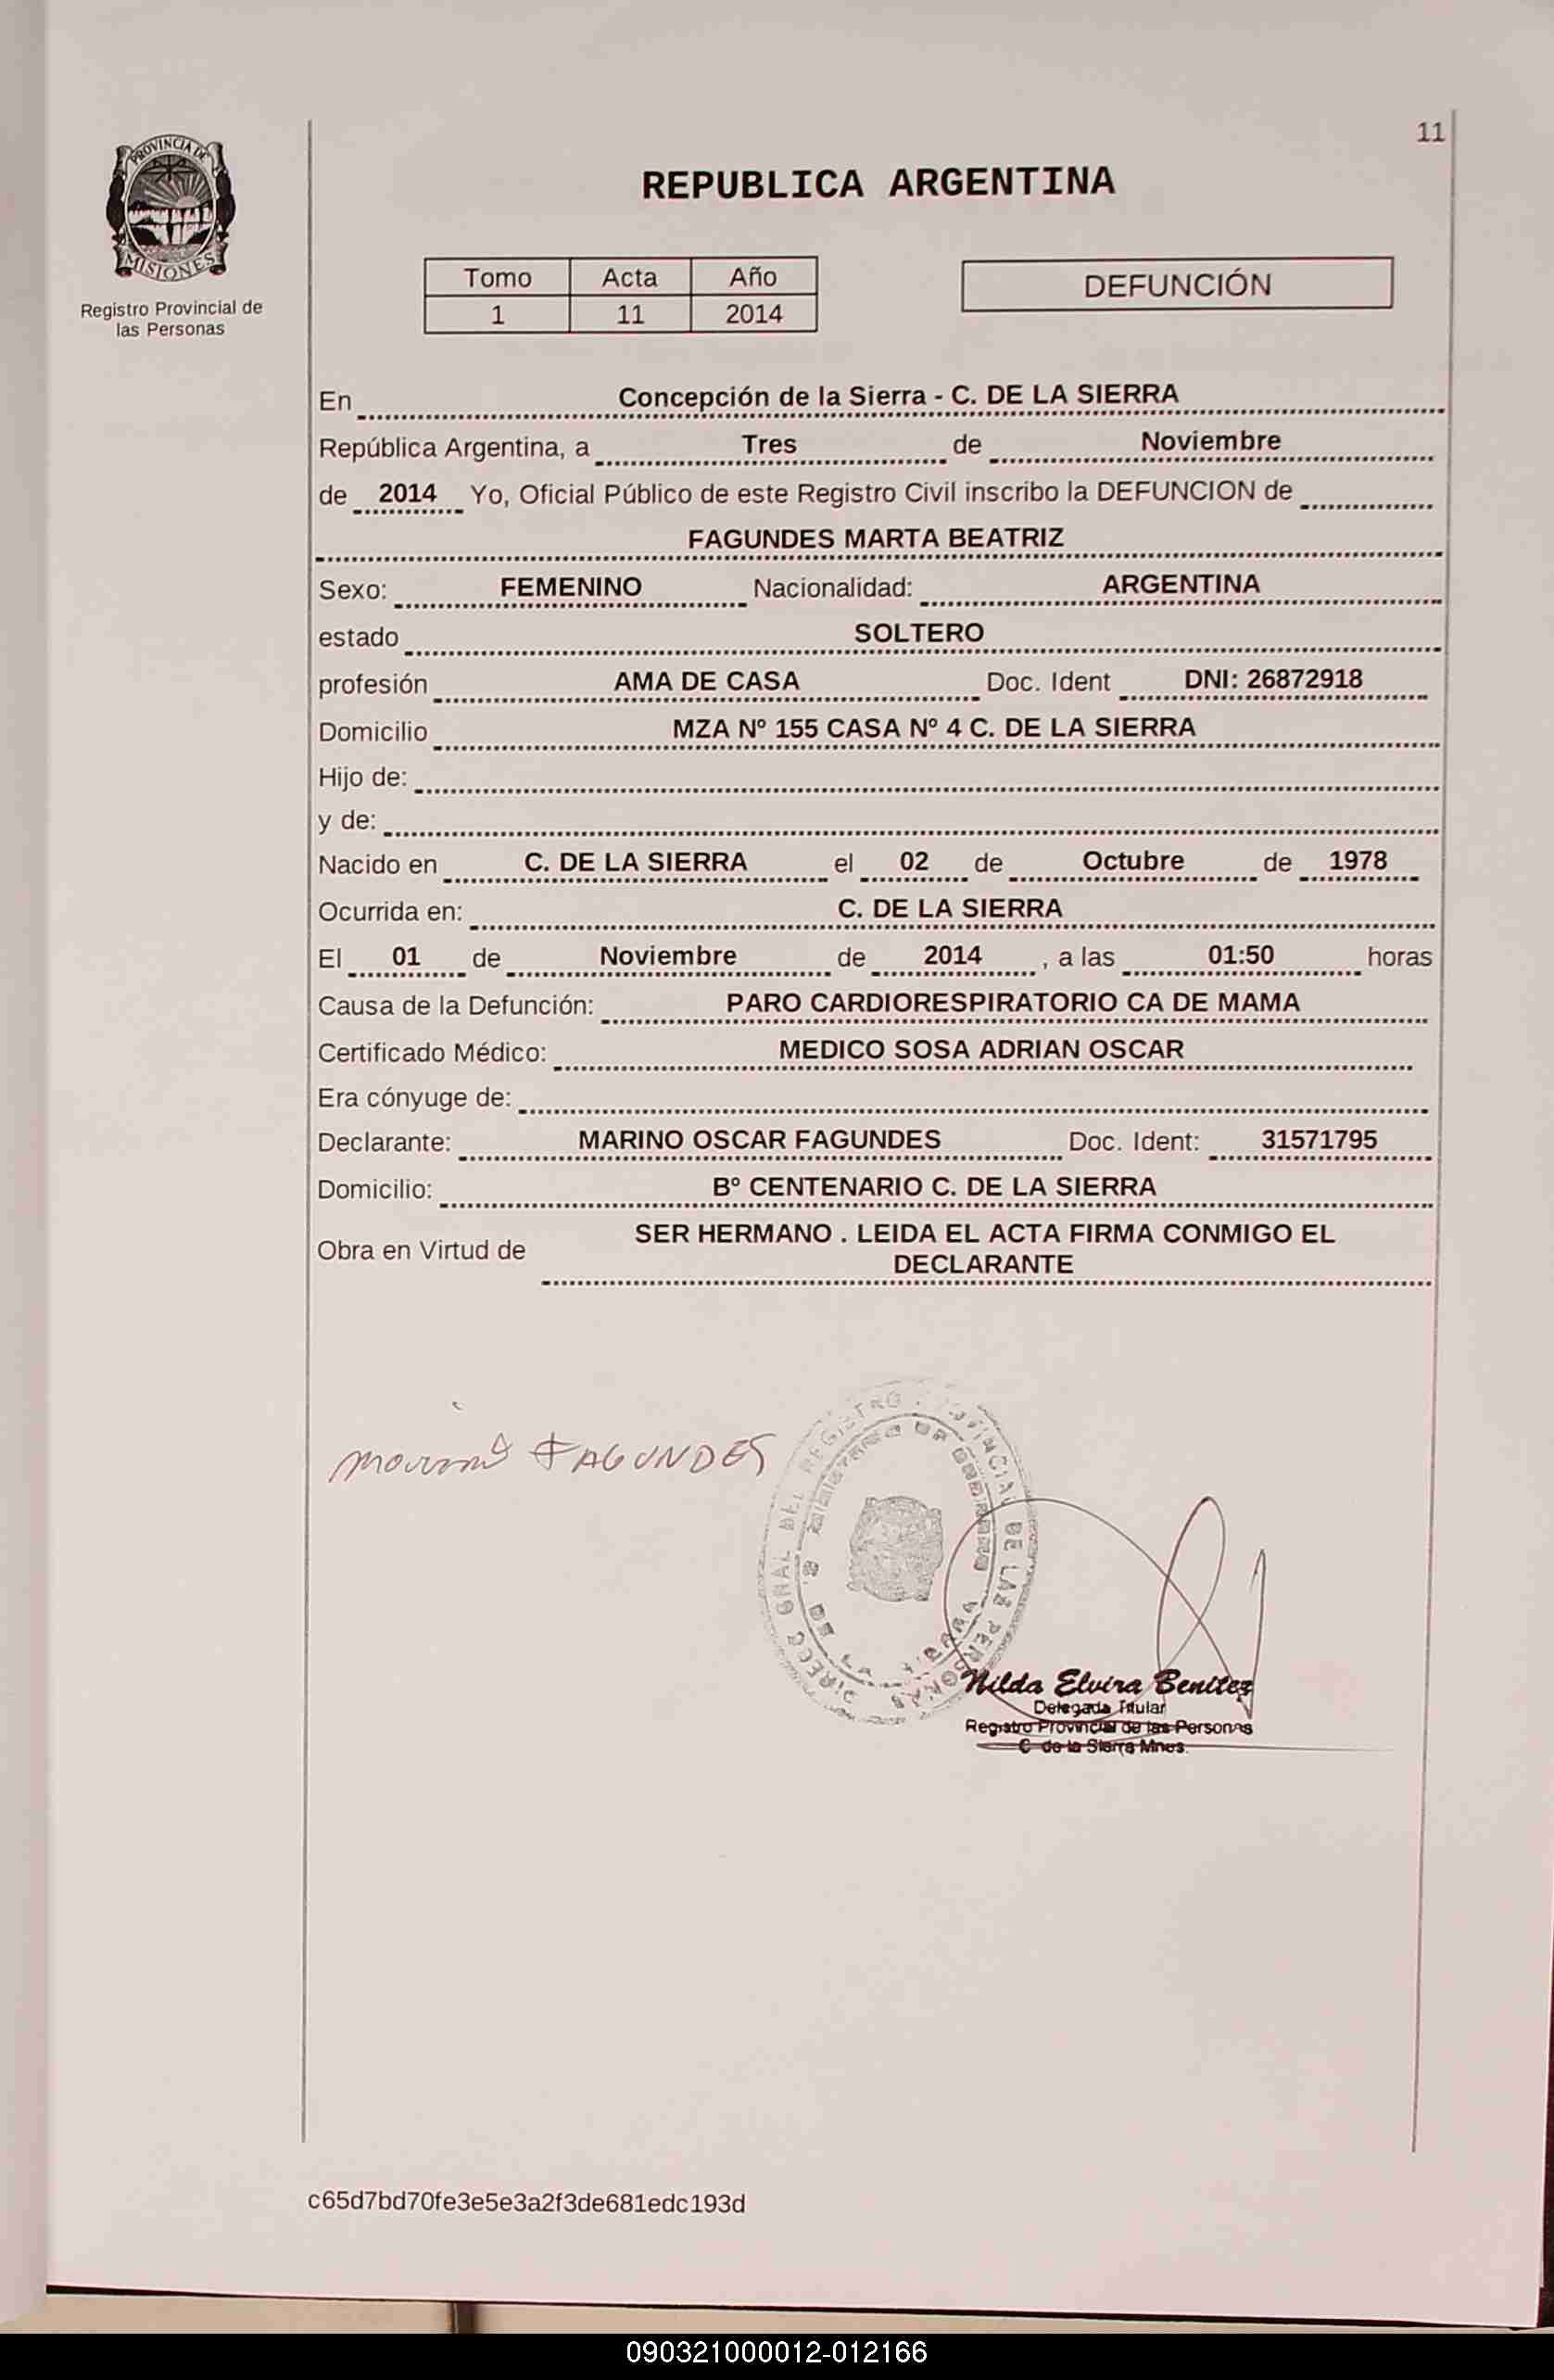 11
PROVINCIA DE
MISIONES
Registro Provincial de
las Personas
REPUBLICA ARGENTINA
Tomo Acta Año
1 11 2014
DEFUNCIÓN
En Concepción de la Sierra - C. DE LA SIERRA
República Argentina, a Tres de Noviembre
de 2014 Yo, Oficial Público de este Registro Civil inscribo la DEFUNCION de
FAGUNDES MARTA BEATRIZ
Sexo: FEMENINO Nacionalidad: ARGENTINA
estado SOLTERO
profesión AMA DE CASA Doc. Ident DNI: 26872918
Domicilio MZA Nº 155 CASA Nº 4 C. DE LA SIERRA
Hijo de:
y de:
Nacido en C. DE LA SIERRA el 02 de Octubre de 1978
Ocurrida en: C. DE LA SIERRA
El 01 de Noviembre de 2014 , a las 01:50 horas
Causa de la Defunción: PARO CARDIORESPIRATORIO CA DE MAMA
Certificado Médico: MEDICO SOSA ADRIAN OSCAR
Era cónyuge de:
Declarante: MARINO OSCAR FAGUNDES Doc. Ident: 31571795
Domicilio: Bº CENTENARIO C. DE LA SIERRA
Obra en Virtud de SER HERMANO . LEIDA EL ACTA FIRMA CONMIGO EL
DECLARANTE
Marino FAGUNDES
DIRECC GRAL DEL REGISTRO PROVINCIAL DE LAS PERSONAS
Nilda Elvira Benitez
Delegada Titular
Registro Provincial de las Personas
C de la Sierra Mnes.
c65d7bd70fe3e5e3a2f3de681edc193d
090321000012-012166